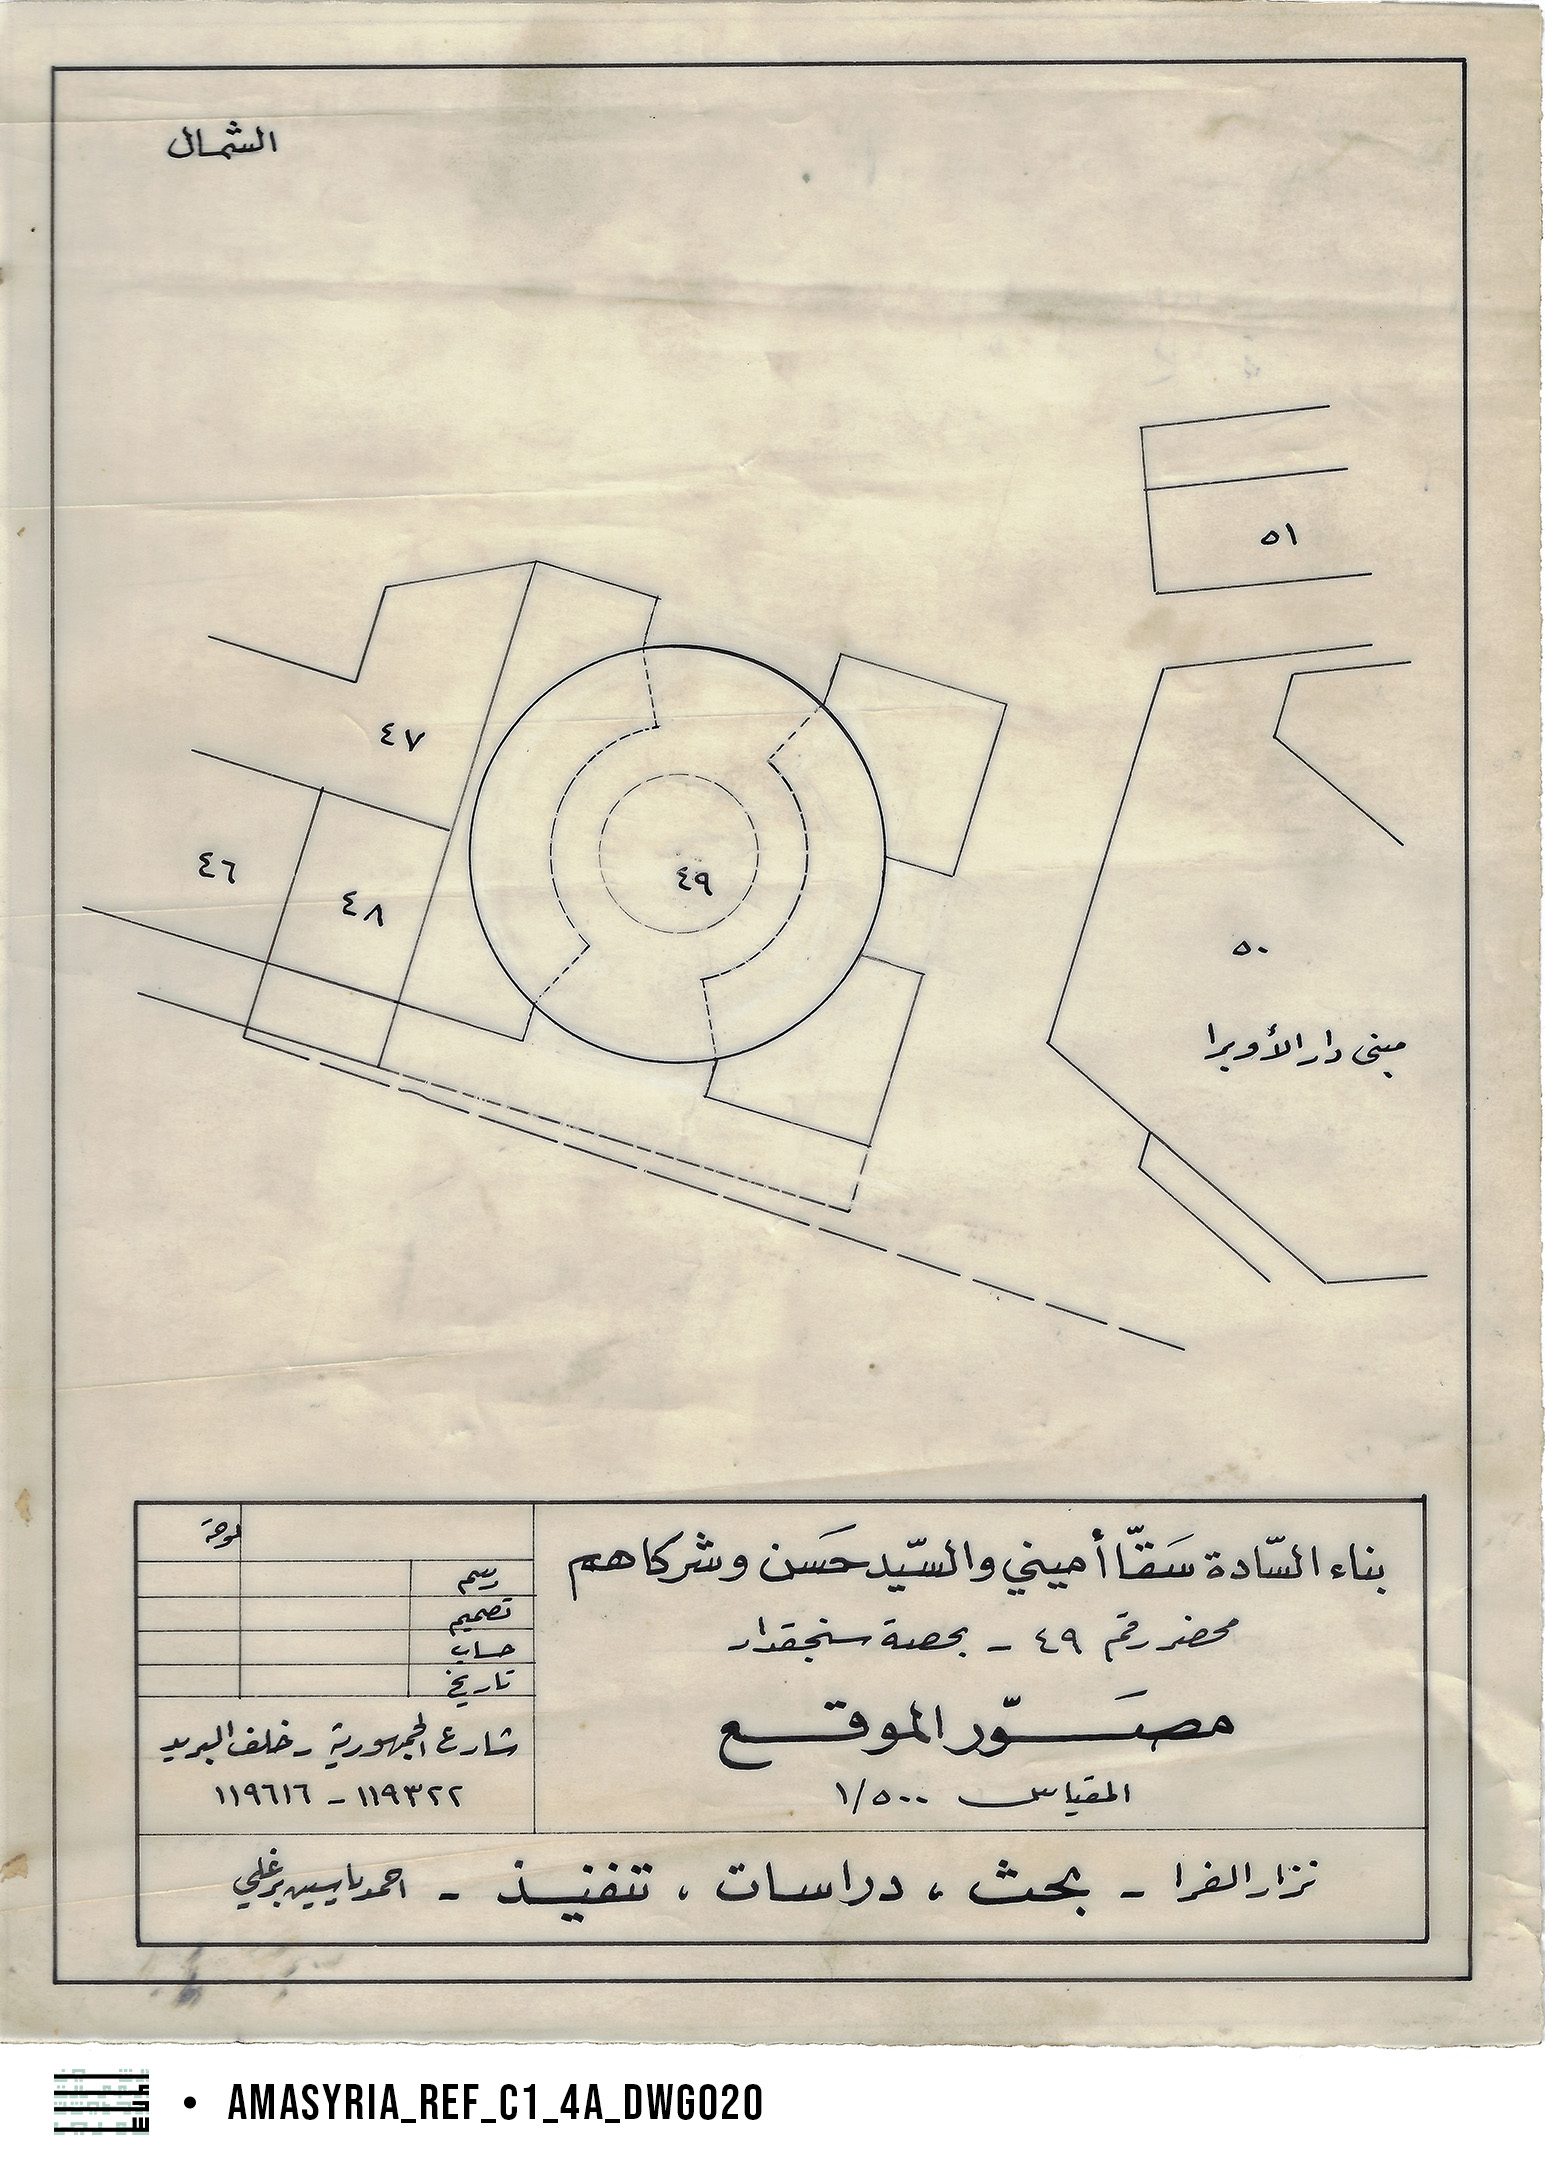 الشمال
٥١
٤٧
٤٦
٤٨
٤٩
٥٠
مبنى دار الأوبرا
بناء السّادة سَقّا أميني والسّيد حَسن وشركاهم
محضر رقم ٤٩ - بحصة سنجقدار
مصَوّر الموقع
المقياس ١/٥٠٠
لوحة
رسم
تصميم
حساب
تاريخ
شارع الجمهورية - خلف البريد
١١٩٣٢٢ - ١١٩٦١٦
نزار الفرا - بحث ، دراسات ، تنفيذ - احمد ياسين برغلي
AMASYRIA_REF_C1_4A_DWG020